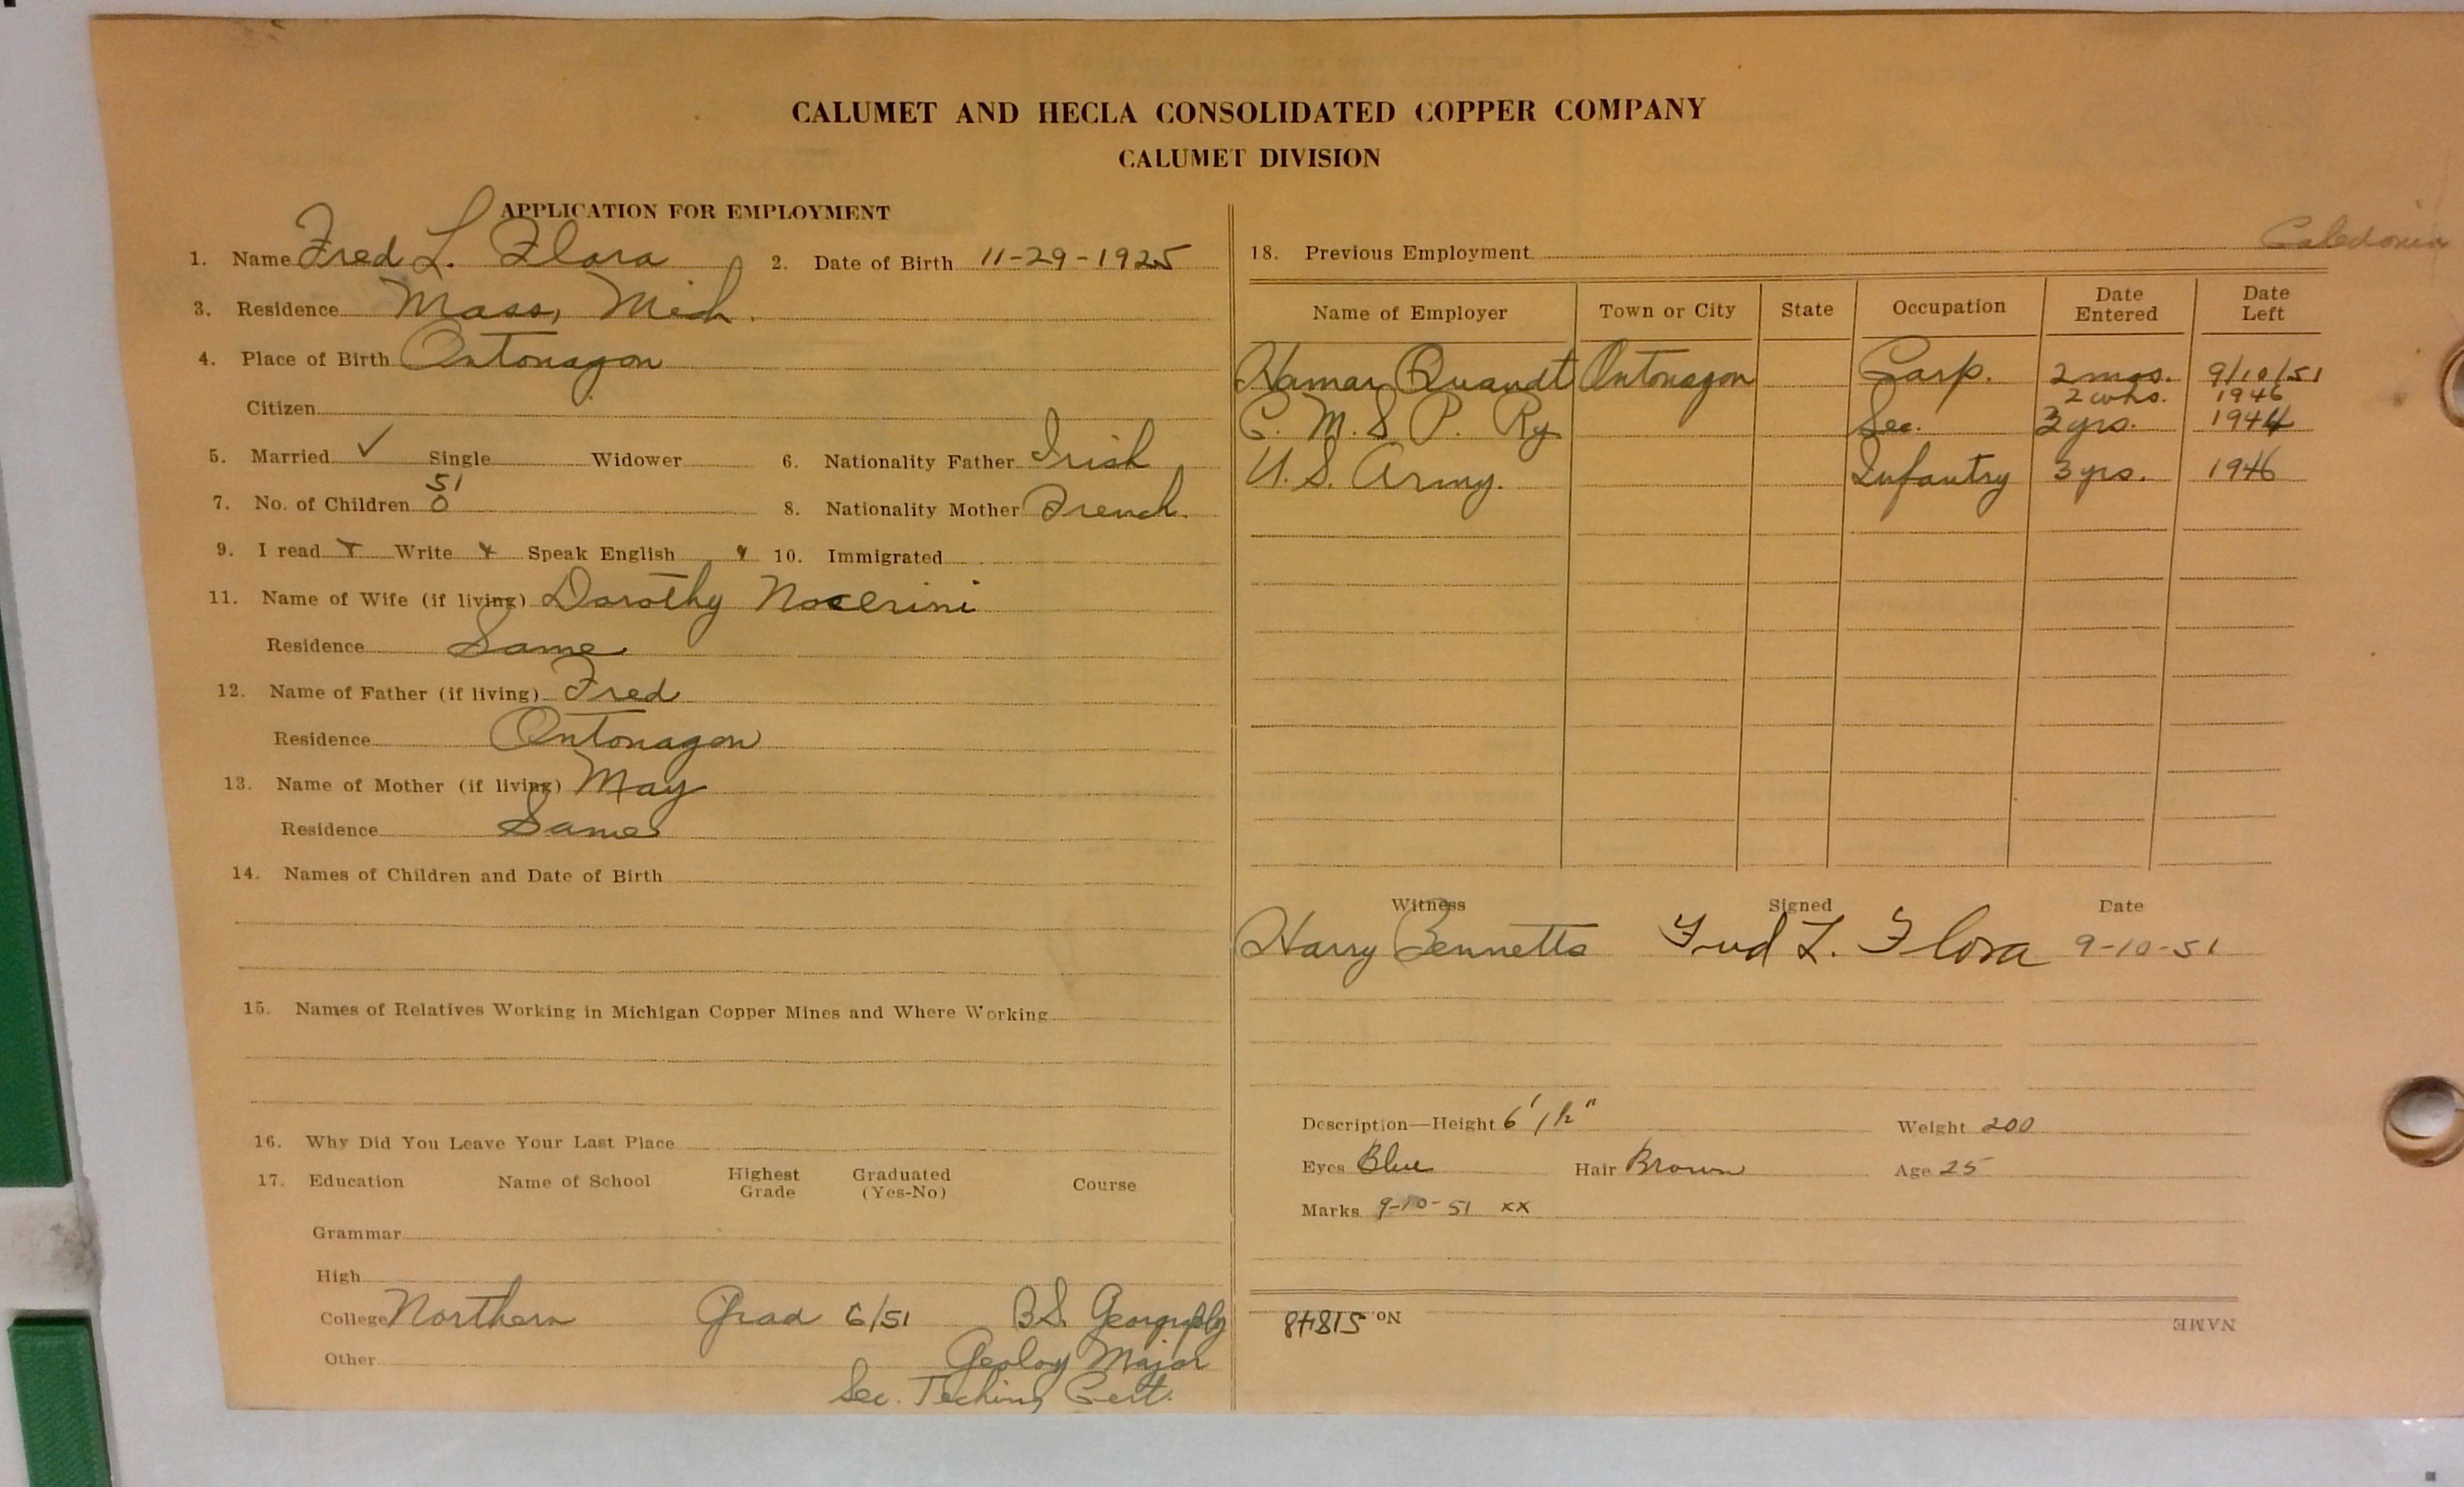 CALUMET AND HECLA CONSOLIDATED COPPER COMPANY
CALUMET DIVISION
APPLICATION FOR EMPLOYMENT
1. Name Fred L. Flora 2. Date of Birth 11-29-1925
3. Residence Mass, Mich.
4. Place of Birth Ontonagon
Citizen
5. Married ✓ Single Widower 6. Nationality Father Irish
51
7. No. of Children 0 8. Nationality Mother French.
9. I read x Write x Speak English x 10. Immigrated
11. Name of Wife (if living) Dorothy Nocerini
Residence Same
12. Name of Father (if living) Fred
Residence Ontonagon
13. Name of Mother (if living) May
Residence Same
14. Names of Children and Date of Birth
15. Names of Relatives Working in Michigan Copper Mines and Where Working
16. Why Did You Leave Your Last Place
17. Education Name of School Highest Grade Graduated (Yes-No) Course
Grammar
High
College Northern Grad 6/51 BS. Geography
Other Geoloy Major
Sec. Teching Cert.
Caledonia
18. Previous Employment
Name of Employer Town or City State Occupation Date Entered Date Left
Hamar Quandt Ontonagon Carp. 2 mos. 9/10/51
2 whs. 1946
C. M. S. P. Ry Sec. 2 yrs. 1944
U. S. Army. Infantry 3 yrs. 1946
Witness Signed Date
Harry Bennetts Fred L. Flora 9-10-51
Description—Height 6' 1½" Weight 200
Eyes Blue Hair Brown Age 25
Marks 9-10-51 xx
No. 51848
NAME